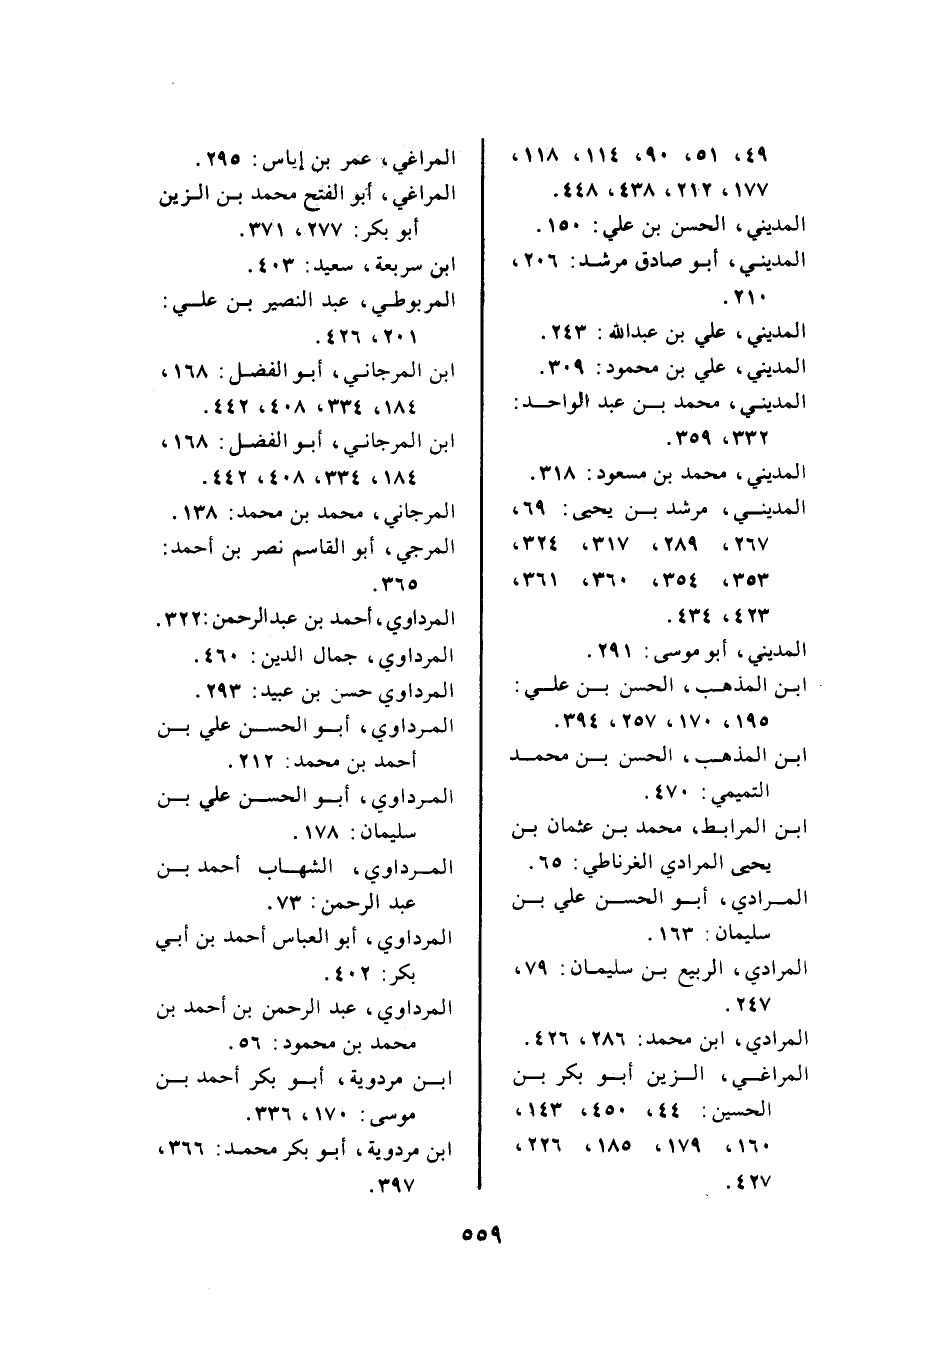 ٤٩، ٥١، ٩٠، ١١٤، ١١٨،
١٧٧، ٢١٢، ٤٣٨، ٤٤٨.
المديني، الحسن بن علي: ١٥٠.
المديني، أبو صادق مرشد: ٢٠٦،
٢١٠.
المديني، علي بن عبدالله: ٢٤٣.
المديني، علي بن محمود: ٣٠٩.
المديني، محمد بن عبد الواحد:
٣٣٢، ٣٥٩.
المديني، محمد بن مسعود: ٣١٨.
المديني، مرشد بن يحيى: ٦٩،
٢٦٧، ٢٨٩، ٣١٧، ٣٢٤،
٣٥٣، ٣٥٤، ٣٦٠، ٣٦١،
٤٢٣، ٤٣٤.
المديني، أبو موسى: ٢٩١.
ابن المذهب، الحسن بن علي:
١٩٥، ١٧٠، ٢٥٧، ٣٩٤.
ابن المذهب، الحسن بن محمد
التميمي: ٤٧٠.
ابن المرابط، محمد بن عثمان بن
يحيى المرادي الغرناطي: ٦٥.
المرادي، أبو الحسن علي بن
سليمان: ١٦٣.
المرادي، الربيع بن سليمان: ٧٩،
٢٤٧.
المرادي، ابن محمد: ٢٨٦، ٤٢٦.
المراغي، الزين أبو بكر بن
الحسين: ٤٤، ٤٥٠، ١٤٣،
١٦٠، ١٧٩، ١٨٥، ٢٢٦،
٤٢٧.
المراغي، عمر بن إياس: ٢٩٥.
المراغي، أبو الفتح محمد بن الزين
أبو بكر: ٢٧٧، ٣٧١.
ابن سريعة، سعيد: ٤٠٣.
المربوطي، عبد النصير بن علي:
٢٠١، ٤٢٦.
ابن المرجاني، أبو الفضل: ١٦٨،
١٨٤، ٣٣٤، ٤٠٨، ٤٤٢.
ابن المرجاني، أبو الفضل: ١٦٨،
١٨٤، ٣٣٤، ٤٠٨، ٤٤٢.
المرجاني، محمد بن محمد: ١٣٨.
المرجي، أبو القاسم نصر بن أحمد:
٣٦٥.
المرداوي، أحمد بن عبدالرحمن: ٣٢٢.
المرداوي، جمال الدين: ٤٦٠.
المرداوي حسن بن عبيد: ٢٩٣.
المرداوي، أبو الحسن علي بن
أحمد بن محمد: ٢١٢.
المرداوي، أبو الحسن علي بن
سليمان: ١٧٨.
المرداوي، الشهاب أحمد بن
عبد الرحمن: ٧٣.
المرداوي، أبو العباس أحمد بن أبي
بكر: ٤٠٢.
المرداوي، عبد الرحمن بن أحمد بن
محمد بن محمود: ٥٦.
ابن مردوية، أبو بكر أحمد بن
موسى: ١٧٠، ٣٣٦.
ابن مردوية، أبو بكر محمد: ٣٦٦،
٣٩٧.
٥٥٩